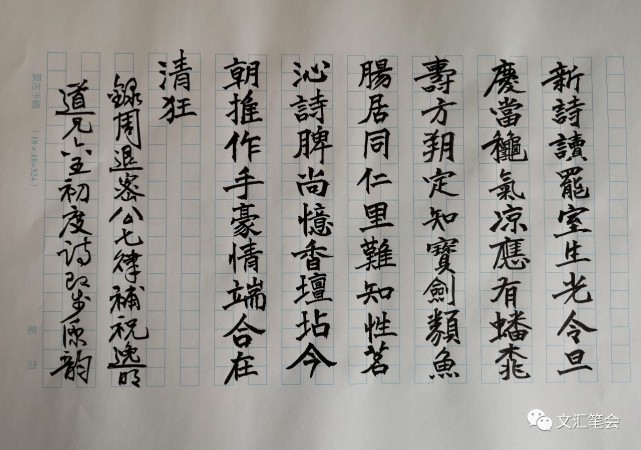 新詩讀罷室生光令旦
慶當龝氣凉應有蟠桃
壽方朔定知寶劍類魚
腸居同仁里難知性茗
沁詩脾尚憶香壇坫今
朝推作手豪情端合在
清狂
錄周退密公七律補祝逸明
道兄初度诗即步原韵
(18×18=324)
文汇笔会